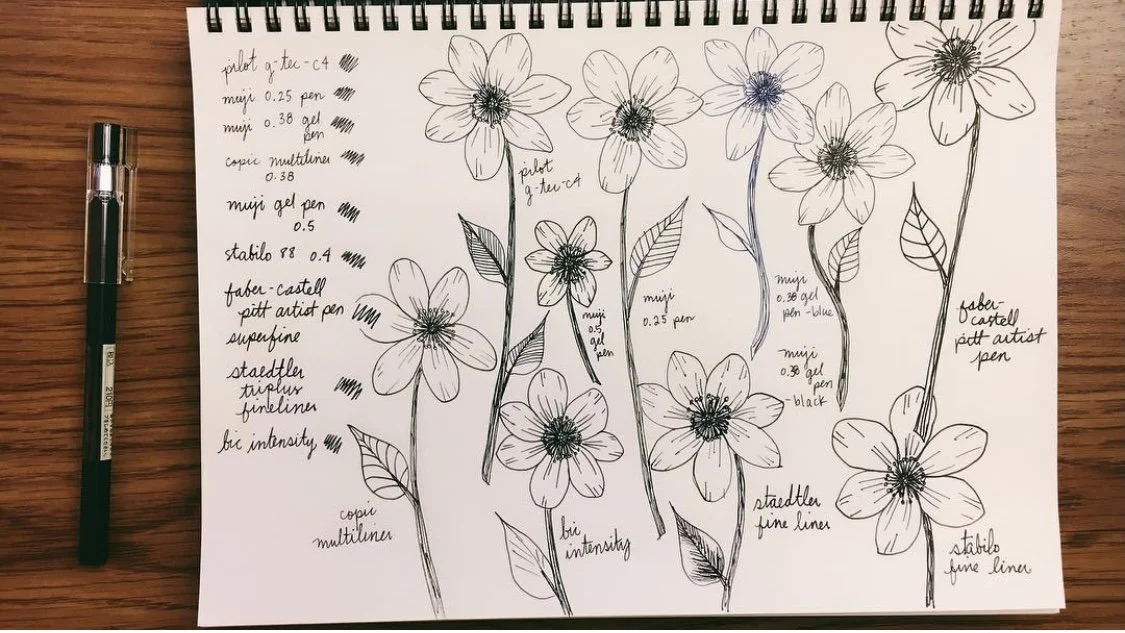 pilot g-tec-c4
muji 0.25 pen
muji 0.38 gel
pen
copic multiliner
0.38
muji gel pen
0.5
stabilo 88 0.4
faber-castell
pitt artist pen
superfine
staedtler
triplus
fineliner
bic intensity
pilot
g-tec-c4
muji
0.5
gel
pen
muji
0.25 pen
muji
0.38 gel
pen -blue
muji
0.38 gel
pen
-black
faber-
castell
pitt artist
pen
copic
multiliner
bic
intensity
staedtler
fine liner
stabilo
fine liner